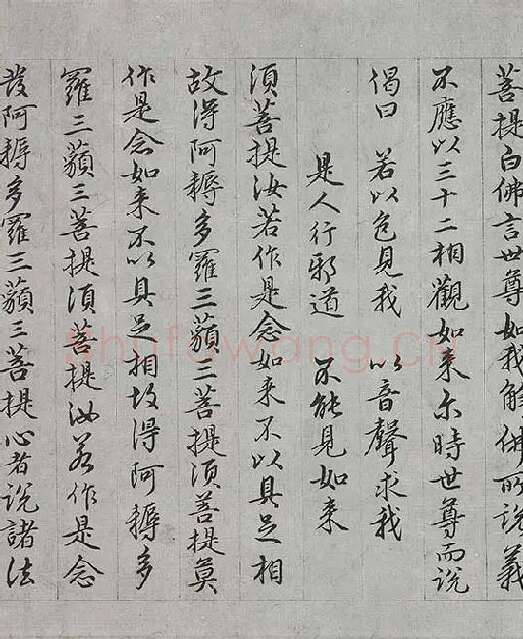 菩提白佛言世尊如我解佛所说義
不應以三十二相觀如来尔時世尊而説
偈曰 若以色見我 以音聲求我
是人行邪道 不能見如来
須菩提汝若作是念如来不以具足相
故得阿耨多羅三藐三菩提須菩提莫
作是念如来不以具足相故得阿耨多
羅三藐三菩提須菩提汝若作是念
發阿耨多羅三藐三菩提心者説諸法
shufawang.cn